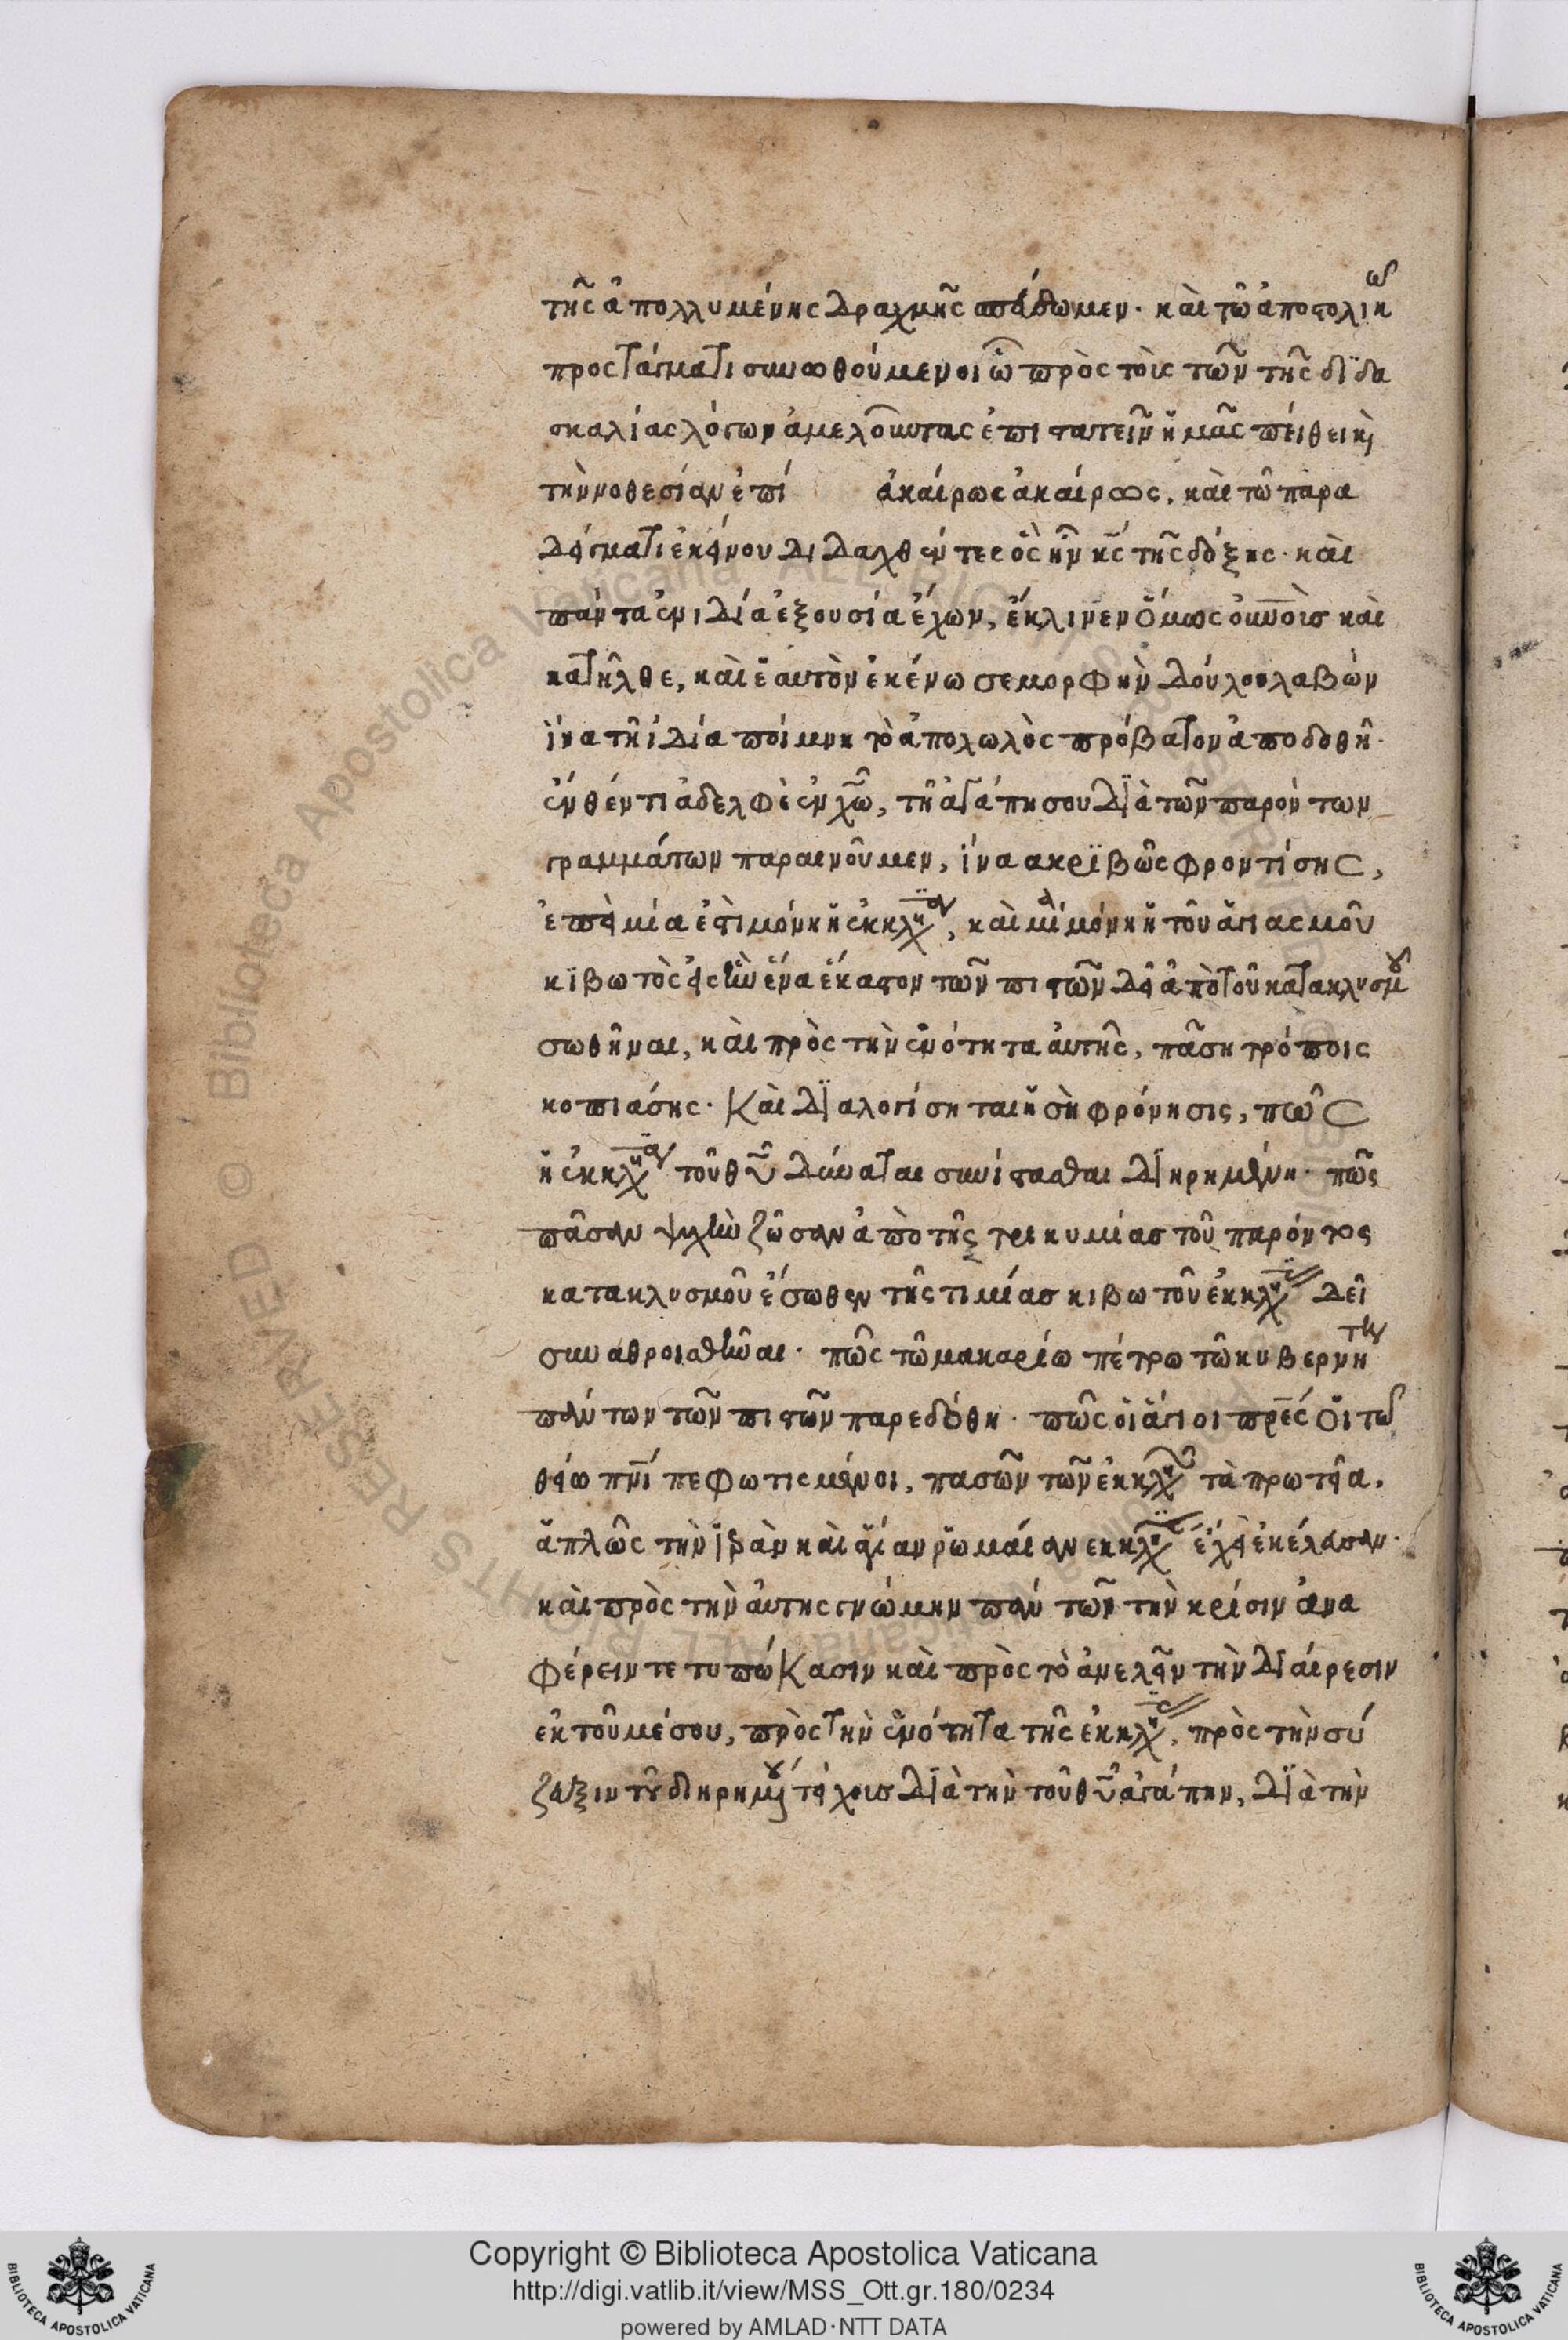 τῆς ἀπολλυμένης δραχμῆς σπεύδωμεν. καὶ τῶ ἀποστολικῶ
προστάγματι συνωθούμενοι ὦ πρὸς τοὶς τῶν τῆς διδα
σκαλίας λόγων ἀμελοῦντας ἐπιτατεῖν ἡμᾶς πείθει καὶ
τὴν νοθεσίαν ἐπί ἀκαίρως ἀκαίρως, καὶ τῶ παρα
δείγματι ἐκείνου διδαχθέντες ὃς ἦν κς τῆς δόξης. καὶ
πάντα ἐν ιδία ἐξουσία ἔχων, ἔκλινεν ὅμως οὐνοὶσ καὶ
κατῆλθε, καὶ ἑαυτὸν ἐκένωσε μορφὴν δούλου λαβὼν
ἵνα τῆ ἰδία ποίμνη τὸ ἀπολωλὸς πρόβατον ἀποδοθῆ.
ἐνθέντι ἀδελφὲ ἐν χῶ, τῆ ἀγάπη σου διὰ τῶν παρόντων
γραμμάτων παραινοῦμεν, ἵνα ακριβῶς φροντίσης,
ἐπεὶ μία ἐστὶ μόνη ἡ ἐκκλησίαν, καὶ μία μόνη ἡ τοῦ ἁγιασμοῦ
κιβωτὸς εἰς ἣν ἕνα ἕκαστον τῶν πιστῶν δεῖ ἀπὸ τοῦ κατακλυσμοῦ
σωθῆναι, καὶ πρὸς τὴν ἑνότητα ἀυτῆς, πᾶση τρόποις
κοπιάσης. Καὶ διαλογίσηται ἡ σὴ φρόνησις, πῶς
ἡ ἐκκλησίαν τοῦ θῦ δύναται συνίστασθαι διηρημένη. πῶς
πᾶσαν ψυχὴν ζῶσαν ἀπὸ τῆς τρικυμίασ τοῦ παρόντος
κατακλυσμοῦ ἔσωθεν τῆς τιμίασ κιβωτοῦ ἐκκλησίας δεῖ
συναθροισθῆναι. πῶς τῶ μακαρίω πέτρω τῶ κυβερνητὴν
πάντων τῶν πιστῶν παρεδόθη. πῶς οἱ ἅγιοι πρές οἱ τῶ
θείω πνί πεφωτισμένοι, πασῶν τῶν ἐκκλησιῶν τὰ πρωτεῖα.
ἁπλῶς τὴν ἱερὰν καὶ ἁγίαν ῥωμαίαν εκκλησίαν ἔχει ἐκέλευσαν.
καὶ πρὸς τὴν ἀυτης γνώμην πάντων τὴν κρίσιν ἀνα
φέρειν τετυπώκασιν καὶ πρὸς τὸ ἀνελεῖν τὴν διαίρεσιν
ἐκ τοῦ μέσου, πρὸς τὴν ἑνότητα τῆς ἐκκλησίας, πρὸς τὴν σύ
ζευξιν τοῦ διηρημένου τείχοισ διὰ τὴν τοῦ θῦ ἀγάπην, διὰ τὴν
Copyright © Biblioteca Apostolica Vaticana
http://digi.vatlib.it/view/MSS_Ott.gr.180/0234
powered by AMLAD·NTT DATA